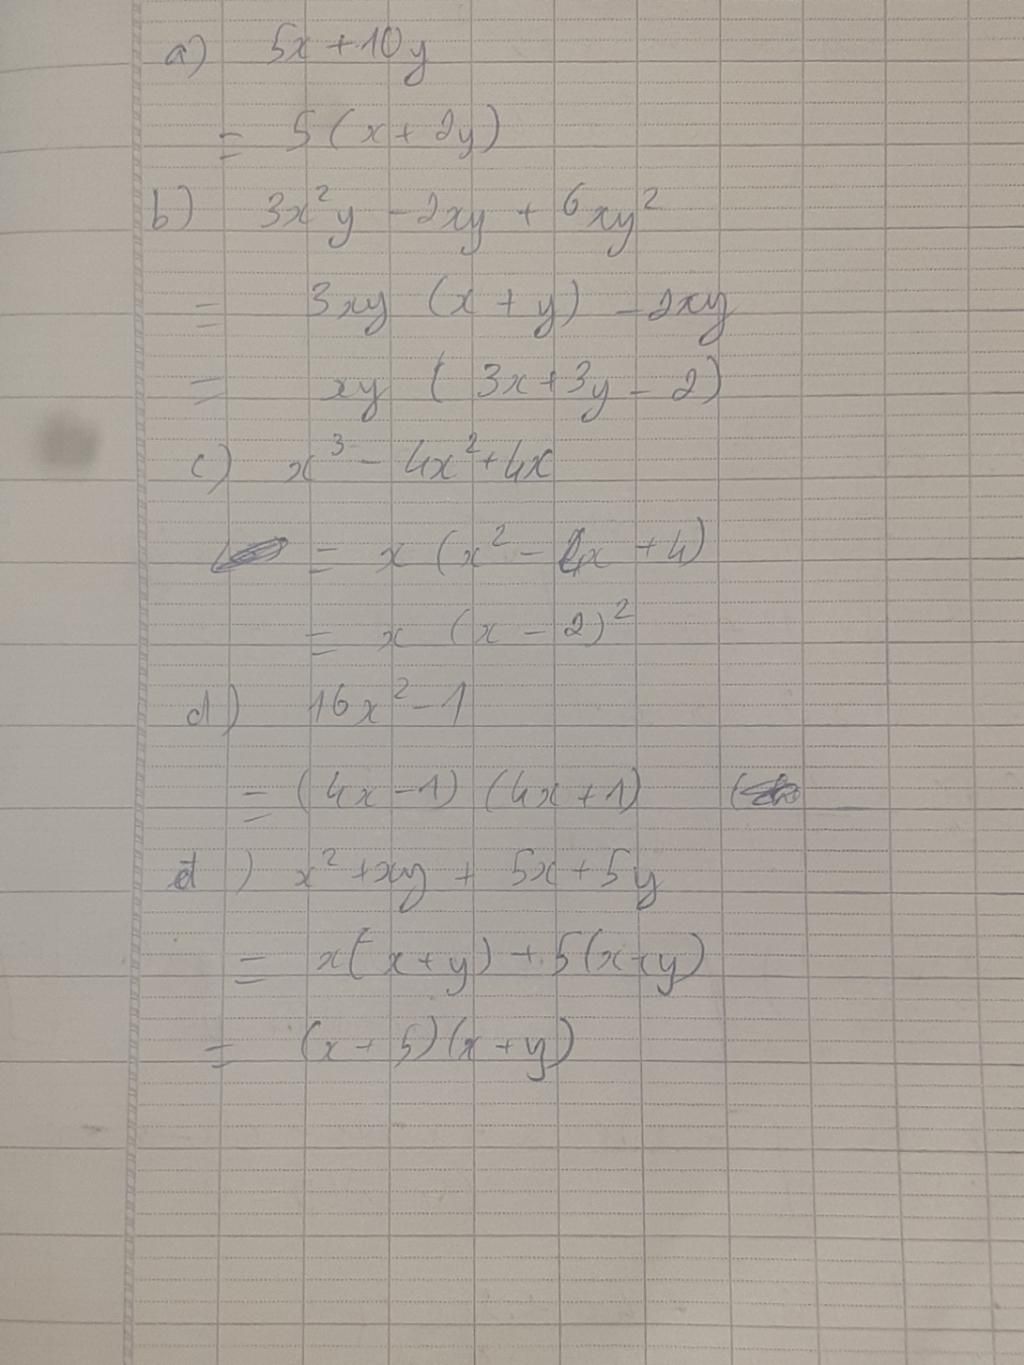 a) 5x + 10y
= 5(x + 2y)
b) 3x²y - 2xy + 6xy²
= 3xy (x + y) - 2xy
= xy (3x + 3y - 2)
c) x³ - 4x² + 4x
= x (x² - 4x + 4)
= x (x - 2)²
d) 16x² - 1
= (4x - 1) (4x + 1) (
đ) x² + xy + 5x + 5y
= x(x + y) + 5(x + y)
= (x + 5)(x + y)